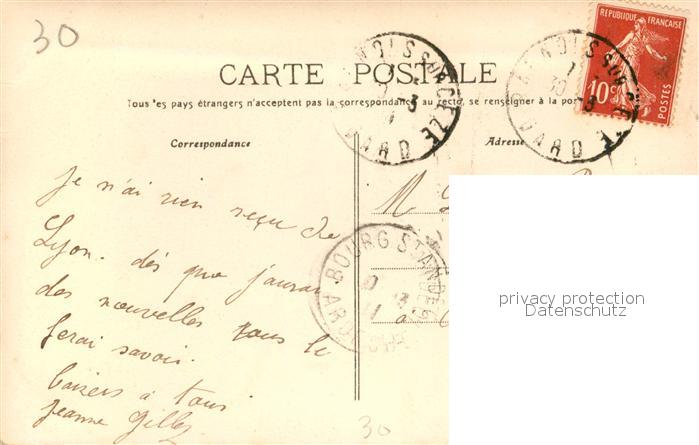 30
RÉPUBLIQUE FRANÇAISE
10c
POSTES
BAGNOLS SUR CEZE
GARD
BAGNOLS SUR CEZE
GARD
CARTE POSTALE
Tous les pays étrangers n'acceptent pas la correspondance au recto, se renseigner à la pos
Correspondance
Adresse
Je n'ai rien reçu de
Lyon. dès que j'aurai
des nouvelles vous le
ferai savoir.
Baisers à tous
Jeanne Gilles
M
BOURG ST ANDEOL
ARDECHE
à
privacy protection
Datenschutz
30